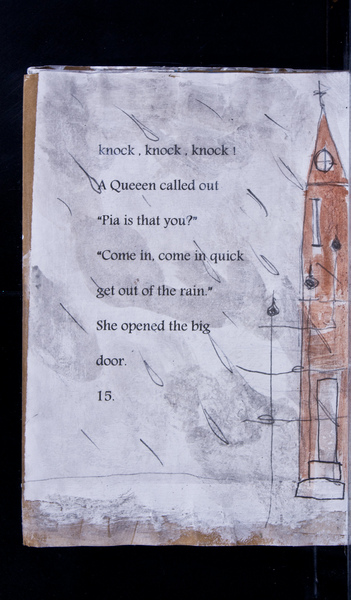 knock , knock , knock !
A Queeen called out
"Pia is that you?"
"Come in, come in quick
get out of the rain."
She opened the big
door.
15.